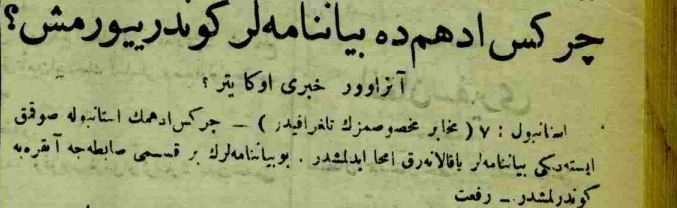 چركس ادهم‌ده بياننامه‌لر كوندرييورمش؟
آنزاوور خبرى اوكا يتر ؟
استانبول : ٧ ( مخابر مخصوصمزك تلغرافيدر ) — چركس ادهمك استانبوله صوقمق
ايسته‌ديكى بياننامه‌لر ياقالانه‌رق امحا ايدلمشدر . بو بياننامه‌لرك بر قسمى ضابطه‌جه آنقره‌يه
كوندرلمشدر — رفعت